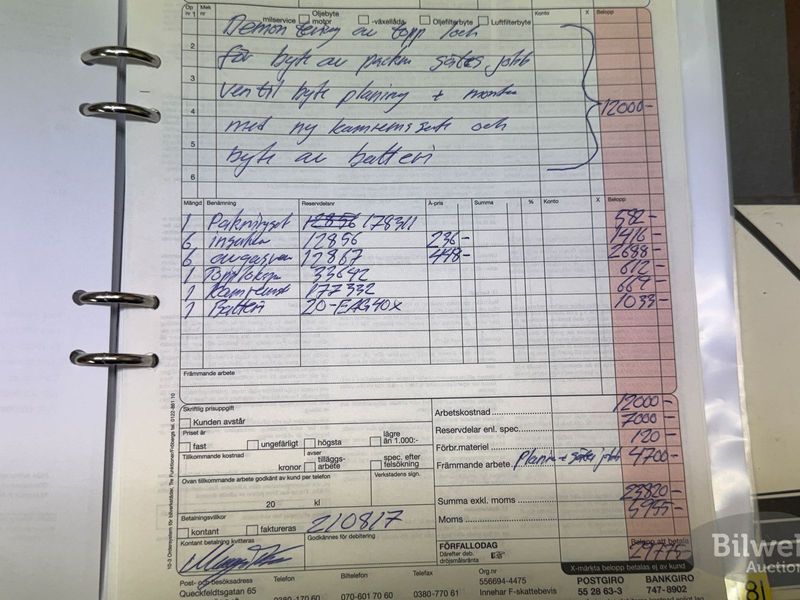 Op nr 1 Mek nr milservice Oljebyte motor -växellåda Oljefilterbyte Luftfilterbyte Konto X Belopp
Demontering av topp och
2
för byte av packn sätes jobb
3
ventil byte planing + montn
4 12000-
med ny kamremssats och
5
byte av batteri
6
Mängd Benämning Reservdelsnr À-pris Summa % Konto X Belopp
1 178311 582-
6 12856 236- 1416-
6 12867 448- 2688-
1 33642 612-
1 177332 669-
1 Batteri 20-EAG40X 1033-
Främmande arbete
Skriftlig prisuppgift
Kunden avstår
Priset är
fast ungefärligt högsta lägre än 1.000:-
Tillkommande kostnad
kronor avser tilläggs-arbete spec. efter felsökning
Ovan tillkommande arbete godkänt av kund per telefon Verkstadens sign.
20 kl
Betalningsvillkor
kontant faktureras 210817
Kontant betalning kvitteras Godkännes för debitering
Arbetskostnad 12000-
Reservdelar enl. spec. 7000-
Förbr.materiel 120-
Främmande arbete Planin + sätes jobb 4700-
Summa exkl. moms 23820-
Moms 5955-
FÖRFALLODAG
Därefter deb. dröjsmålsränta
Belopp att betala
29775
X-märkta belopp betalas ej av kund
Post- och besöksadress Telefon Biltelefon Telefax Org.nr
556694-4475
Queckfeldtsgatan 65 0380-170 60 070-601 70 60 0380-770 61 Innehar F-skattebevis
POSTGIRO BANKGIRO
55 28 63-3 747-8902
10-S Ordersystem för bilverkstäder.
Bilweb
Auctions
81